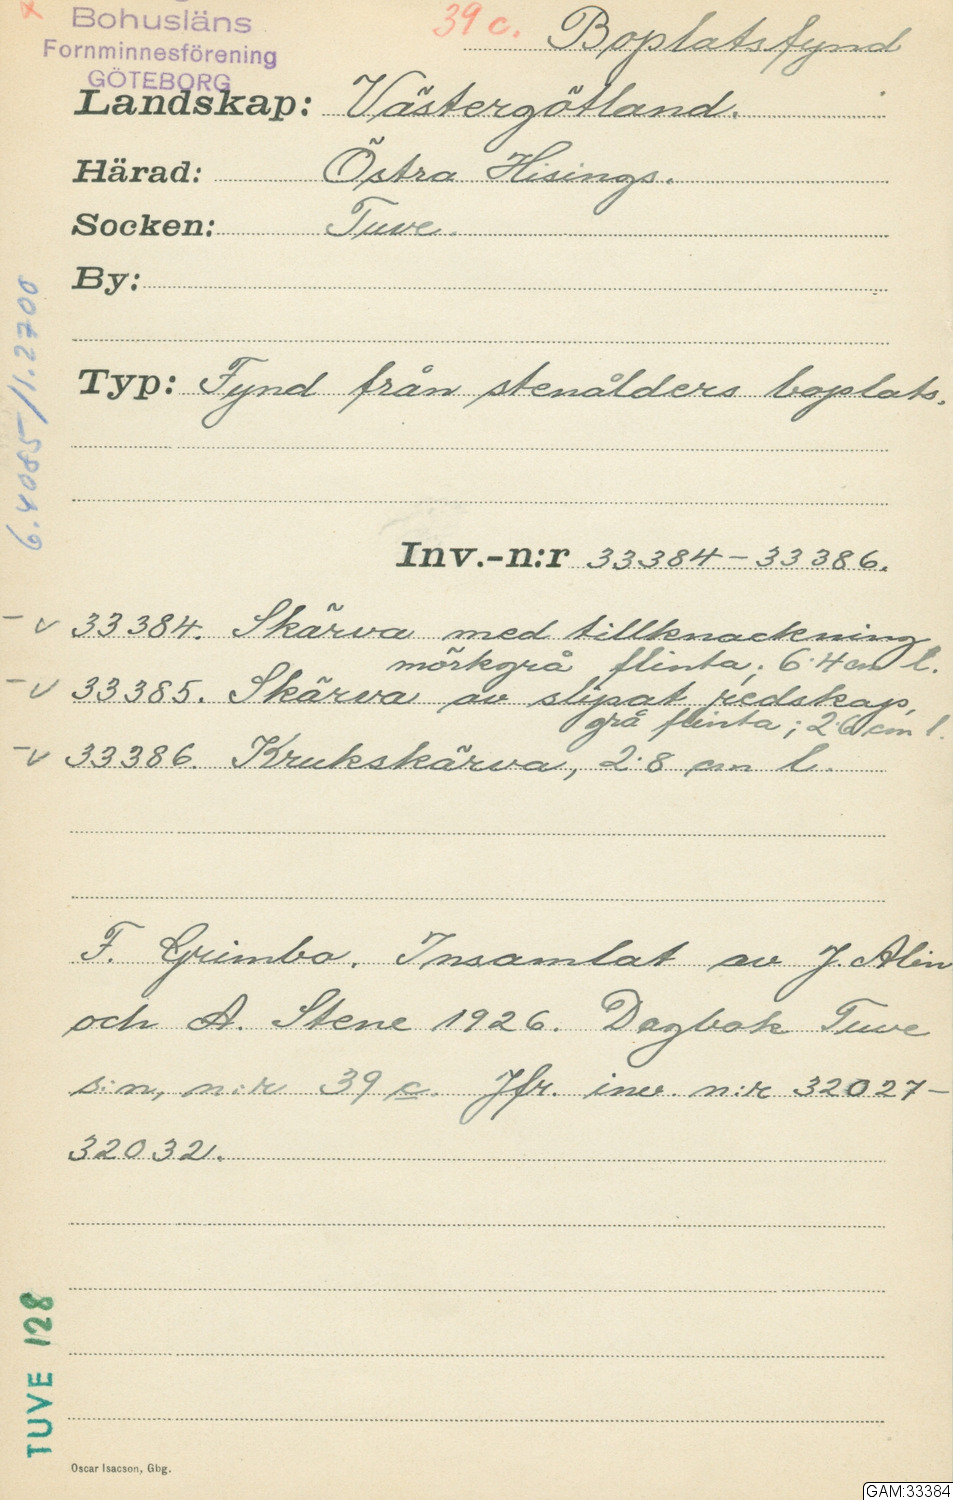 Bohusläns
Fornminnesförening
GÖTEBORG
39 c. Boplatsfynd
Landskap: Västergötland.
Härad: Östra Hisings.
Socken: Tuve.
By:
Typ: Fynd från stenålders boplats.
Inv.-n:r 33384-33386.
33384. Skärva med tillknackning
mörkgrå flinta; 6.4 cm l.
33385. Skärva av slipat redskap,
grå flinta; 2.6 cm l.
33386. Krukskärva, 2.8 cm l.
F. Grimbo. Insamlat av J. Alin
och A. Stene 1926. Dagbok Tuve
s:n, n:r 39 c. Jfr. inv. n:r 32027-
32032.
TUVE 128
Oscar Isacson, Gbg.
GAM:33384